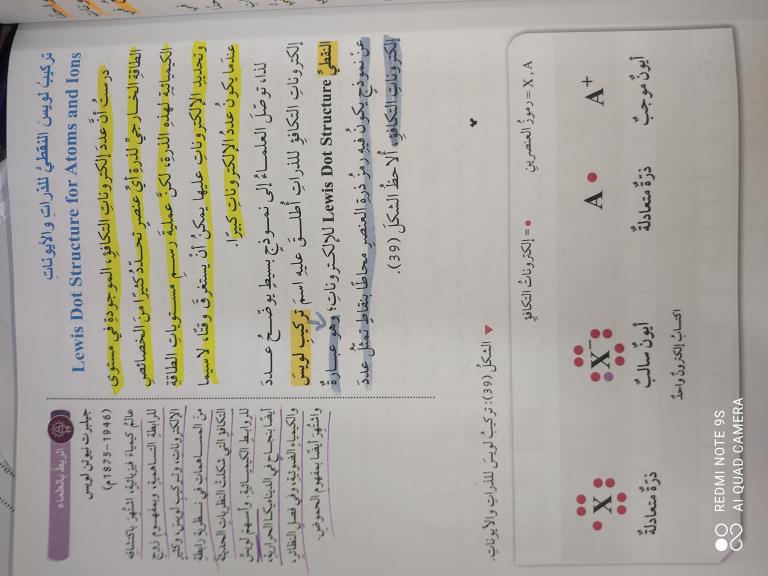 تركيبُ لويسَ النقطيُّ للذراتِ والأيوناتِ
Lewis Dot Structure for Atoms and Ions
درستُ أنَّ عددَ إلكتروناتِ التكافؤِ، الموجودةِ في مستوى
الطاقةِ الخارجيِّ لذرةِ أيِّ عنصرٍ تحدّدُ كثيرًا منَ الخصائصِ
الكيميائيةِ لهذهِ الذرةِ، لكنَّ عمليةَ رسمِ مستوياتِ الطاقةِ
وتحديدِ الإلكتروناتِ عليها يمكنُ أنْ يستغرقَ وقتًا، لاسيما
عندما يكونُ عددُ الإلكتروناتِ كبيرًا.
لذا، توصلَ العلماءُ إلى نموذجٍ بسيطٍ يوضّحُ عددَ
إلكتروناتِ التكافؤِ للذراتِ أُطلقَ عليهِ اسمَ تركيبِ لويسَ
النقطيِّ Lewis Dot Structure للإلكتروناتِ؛ وهوَ عبارةٌ
عنْ نموذجٍ يكونُ فيهِ رمزُ ذرةِ العنصرِ محاطًا بنقاطٍ تمثلُ عددَ
إلكتروناتِ التكافؤِ، ألاحظُ الشكلَ (39).
الربطُ بالعلماء
جيلبرت نيوتن لويس
(1875-1946م)
عالمُ كيمياءَ فيزيائيةٍ، اشتُهرَ باكتشافِهِ
للرابطةِ التساهميةِ، وبمفهومِ زوجِ
الإلكتروناتِ، وتركيبِ لويسَ، وكثيرٍ
منَ المساهماتِ في نظريةِ رابطةِ
التكافؤِ التي شكلتْ النظرياتِ الحديثةَ
للروابطِ الكيميائيةِ. وأسهمَ لويسُ
أيضًا بنجاحٍ في الديناميكا الحراريةِ،
والكيمياءِ الضوئيةِ، وفي فصلِ النظائرِ،
واشتُهرَ أيضًا بمفهومِ الحموضِ.
الشكلُ (39): تركيبُ لويسَ للذراتِ والأيوناتِ.
= إلكتروناتُ التكافؤِ
X , A = رموزُ العنصرينِ
X
ذرّةٌ متعادلةٌ
X−
أيونٌ سالبٌ
اكتسابُ إلكترونٍ واحدٍ
A
ذرّةٌ متعادلةٌ
A+
أيونٌ موجبٌ
REDMI NOTE 9S
AI QUAD CAMERA